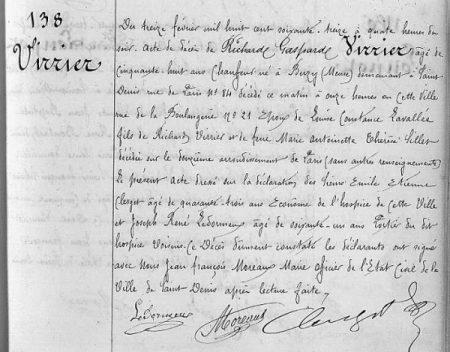 138
Virrier
Du treize février mil huit cent soixante-treize à quatre heures du
soir. Acte de décès de Richard Gaspard Virrier âgé de
cinquante-huit ans Changeur né à (Meuse) demeurant à Saint-
Denis rue de Paris No 84 décédé ce matin à onze heures en cette Ville
rue de la Boulangerie No 21 Epoux de Louise Constance Lavallée
fils de Richard Virrier et de feue Marie Antoinette Thérèse
décédée sur le deuxième arrondissement de Paris (sans autres renseignements)
Le présent acte dressé sur la déclaration des Sieurs Emile Etienne
Clerget âgé de quarante-trois ans Econome de l'hospice de cette Ville
et Joseph René Ledormeur âgé de soixante-un ans Portier du dit
hospice Voisins. Ce Décès dûment constaté les déclarants ont signé
avec Nous Jean François Moreaux Maire officier de l'Etat Civil de la
Ville de Saint Denis après lecture faite,
Ledormeur Moreaux Clerget